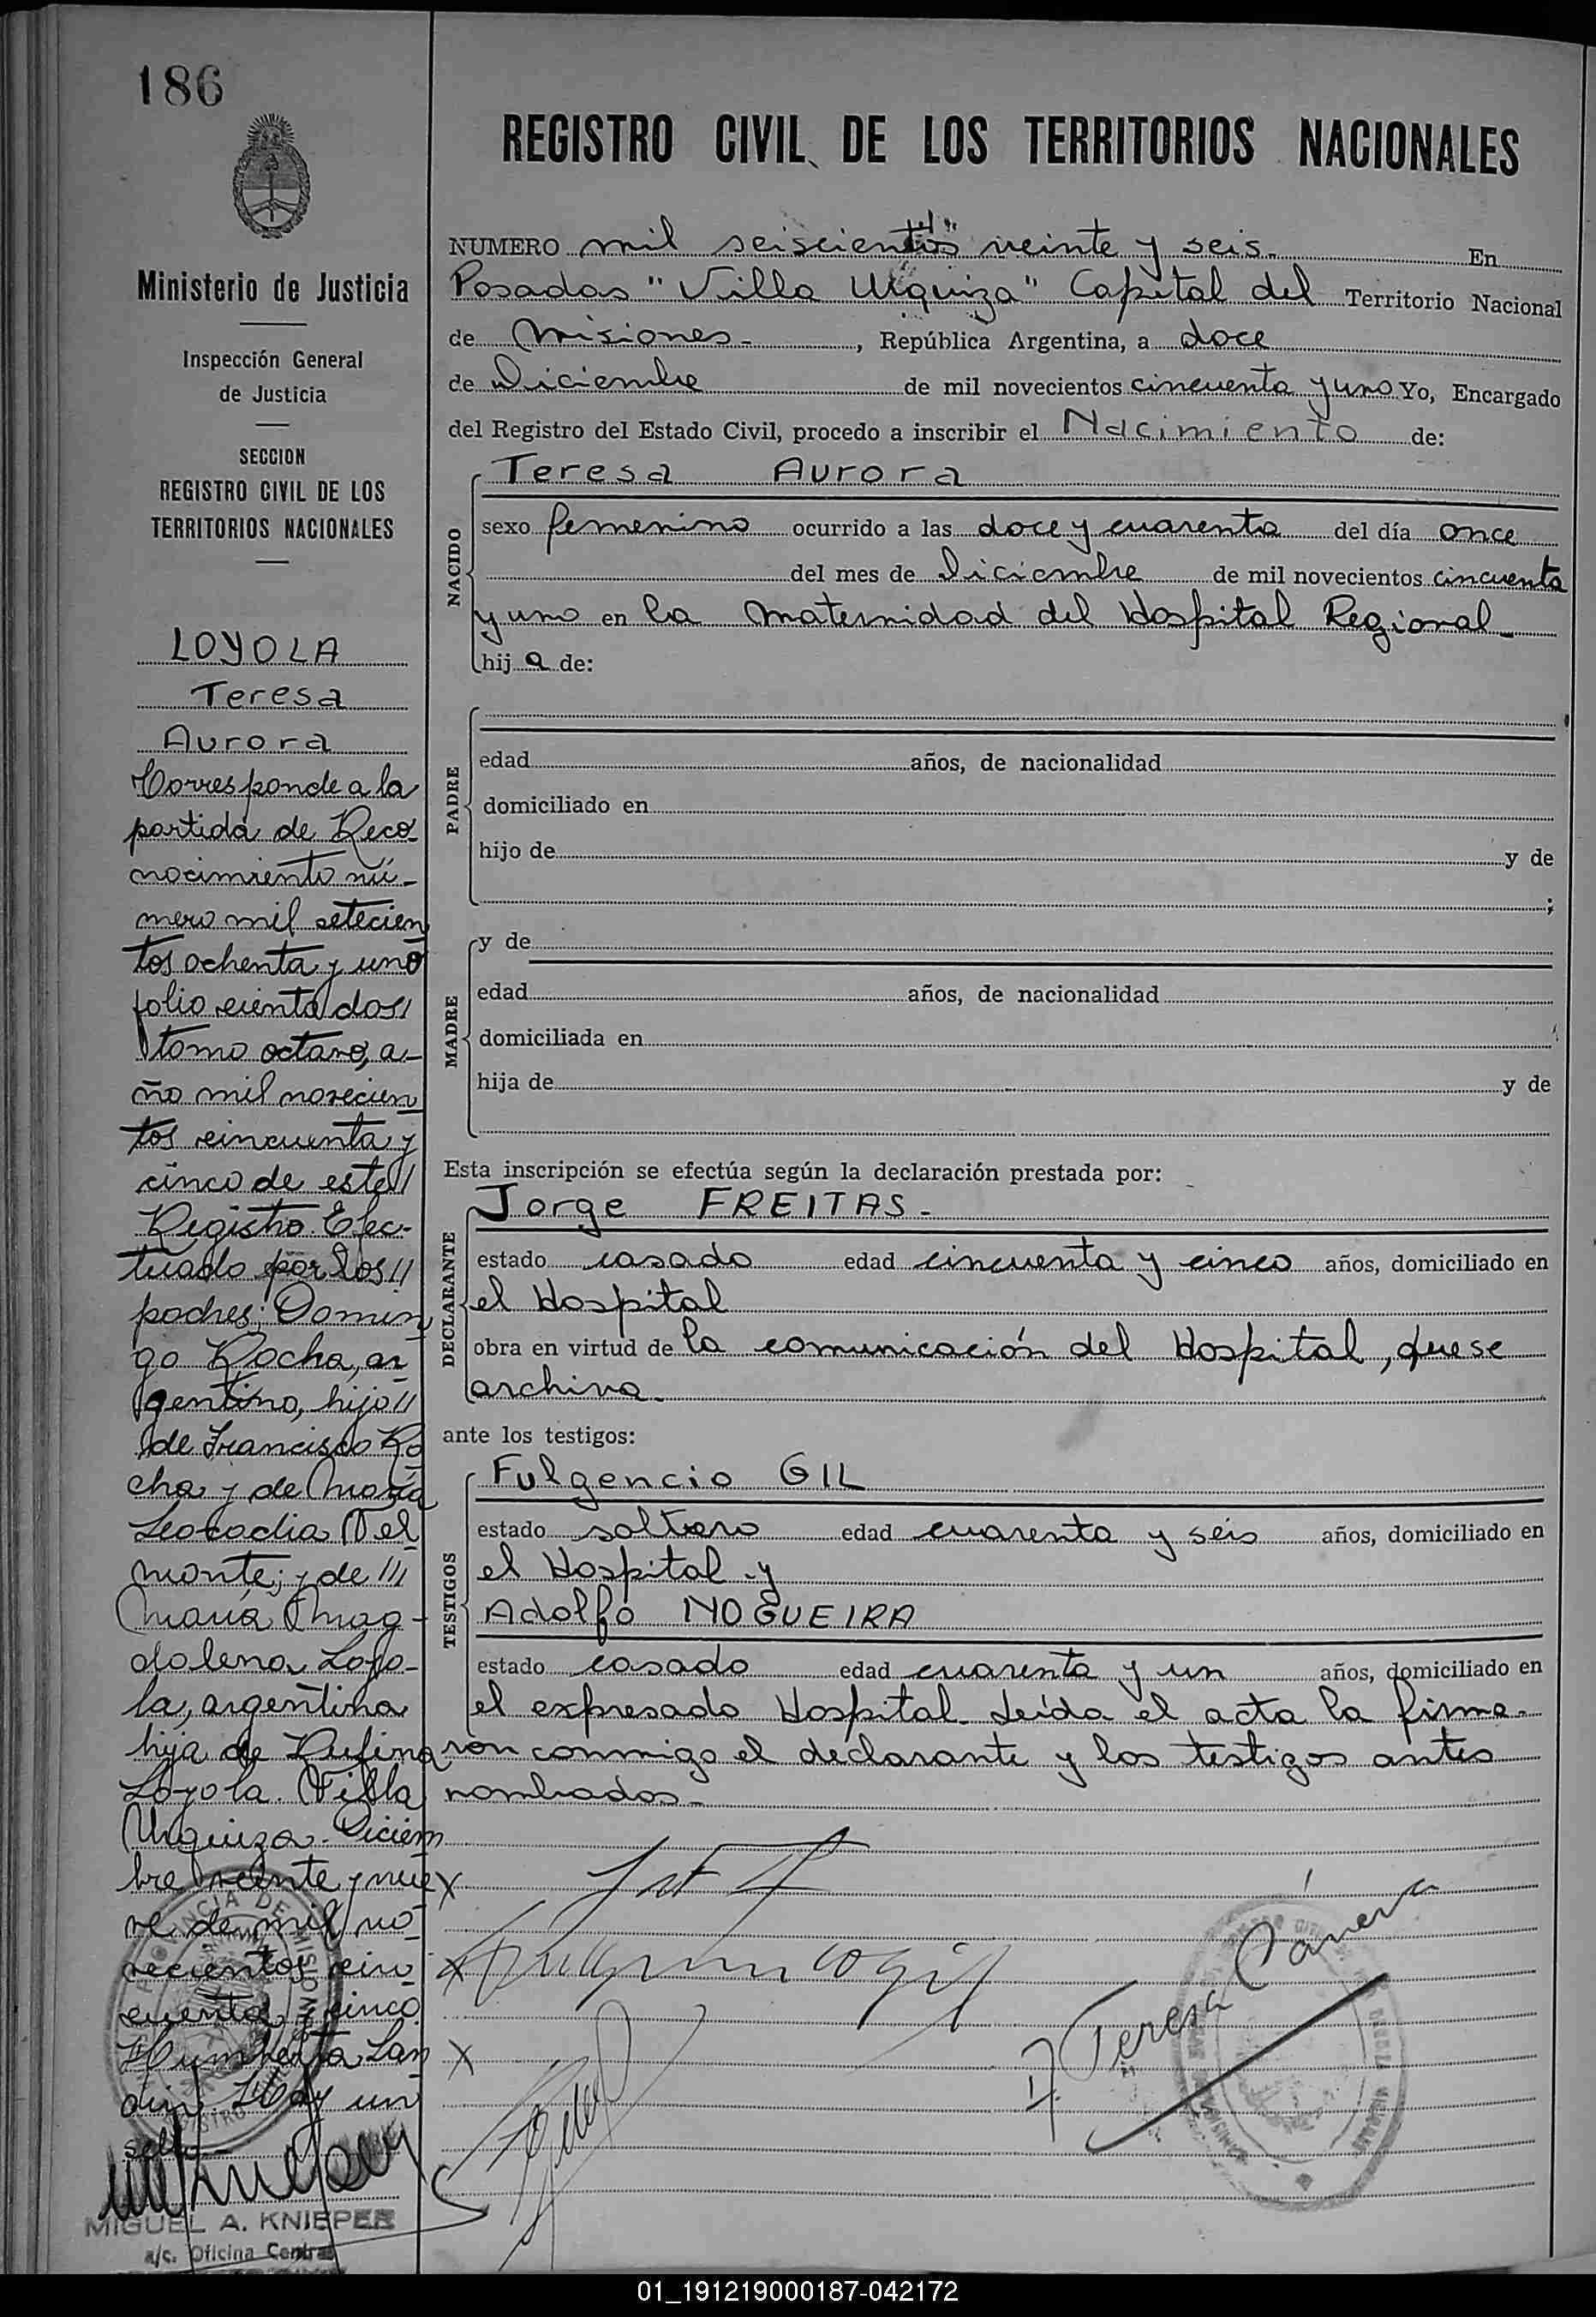 186
Ministerio de Justicia
Inspección General
de Justicia
SECCION
REGISTRO CIVIL DE LOS
TERRITORIOS NACIONALES
LOYOLA
Teresa
Aurora
Corresponde a la
partida de Reco-
nocimiento nú-
mero mil setecien
tos ochenta y uno
folio ciento dos//
tomo octavo, a-
ño mil novecien
tos cincuenta y
cinco de este//
Registro. Efec-
tuado por los//
padres: Domin
go Rocha, ar
gentino, hijo//
de Francisco Ro
cha y de María
Leocadia Vel
monte; y de ///
María Mag-
dalena Loyo-
la, argentina
hija de Rufina
Loyola. Villa
Urquiza. Diciem
bre veinte y nue
ve de mil no
vecientos cin
cuenta y cinco
Humberto Lan
din. Hay un
sello.-
MIGUEL A. KNIEPER
a/c. Oficina Central
REGISTRO CIVIL DE LOS TERRITORIOS NACIONALES
NUMERO mil seiscientos veinte y seis.- En
Posadas "Villa Urquiza" Capital del Territorio Nacional
de Misiones.- , República Argentina, a doce
de Diciembre de mil novecientos cincuenta y uno Yo, Encargado
del Registro del Estado Civil, procedo a inscribir el Nacimiento de:
NACIDO
Teresa Aurora
sexo femenino ocurrido a las doce y cuarenta del día once
del mes de Diciembre de mil novecientos cincuenta
y uno en la Maternidad del Hospital Regional.-
hij a de:
PADRE
edad años, de nacionalidad
domiciliado en
hijo de y de
;
MADRE
y de
edad años, de nacionalidad
domiciliada en
hija de y de
Esta inscripción se efectúa según la declaración prestada por:
DECLARANTE
Jorge FREITAS.-
estado casado edad cincuenta y cinco años, domiciliado en
el Hospital
obra en virtud de la comunicación del Hospital, que se
archiva.-
ante los testigos:
TESTIGOS
Fulgencio GIL
estado soltero edad cuarenta y seis años, domiciliado en
el Hospital y
Adolfo NOGUEIRA
estado casado edad cuarenta y un años, domiciliado en
el expresado Hospital. Leída el acta la firma-
ron conmigo el declarante y los testigos antes
nombrados.-
X
X
X
Teresa
01_191219000187-042172